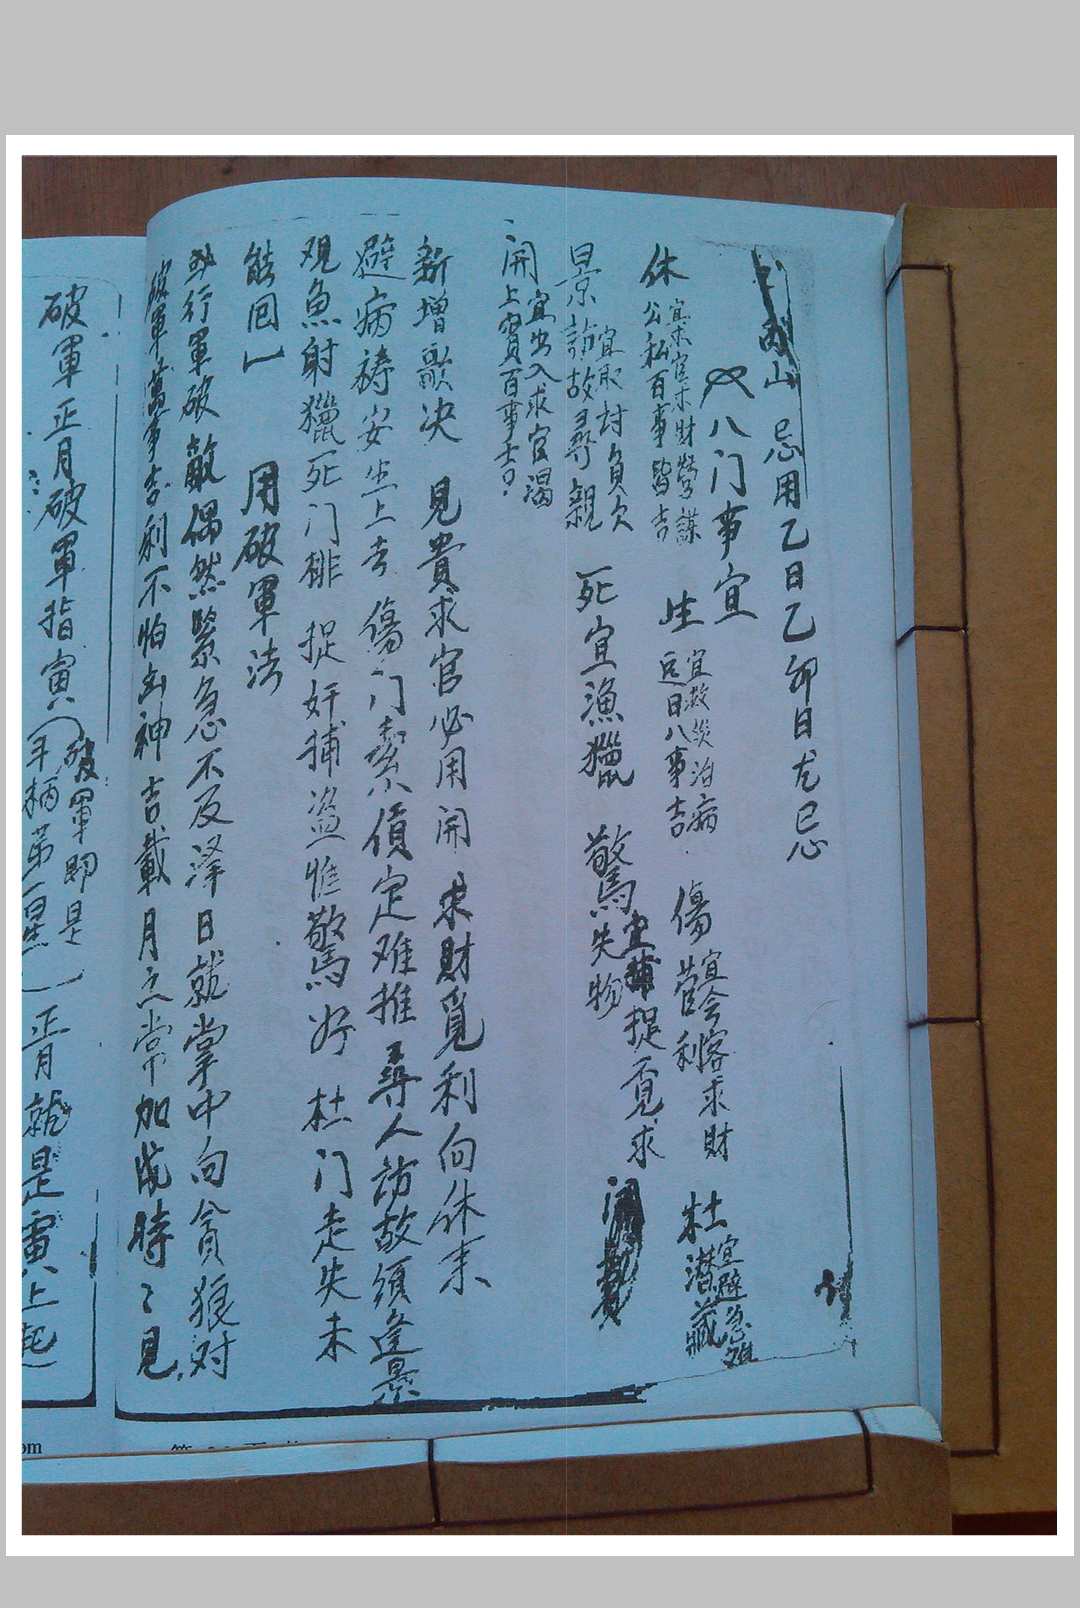 山 忌用乙日乙卯日尤忌
八门事宜
休 宜求官求财營謀
公私百事皆吉
生 宜救災治病
逐日八事吉
傷 宜会客求財
營利
杜 宜避急难
潜藏
景 宜取討負欠
訪故尋親
死宜漁獵
驚 宜捕捉覓求
失物
開 宜出入求官渴
上賓百事吉
新增歌决 見貴求官必用開 求財覓利向休来
避病祷安生上去 傷门索債定难推 尋人訪故須逢景
观魚射獵死门排 捉奸捕盗惟驚好 杜门走失未
能囘
用破軍法
行軍破敵偶然緊急不及泽日就掌中向貪狼对
破軍萬事吉利不怕凶神吉載月月常加戌時時見
破軍正月破軍指寅
破軍即是
斗柄第一星
正月就是寅上起